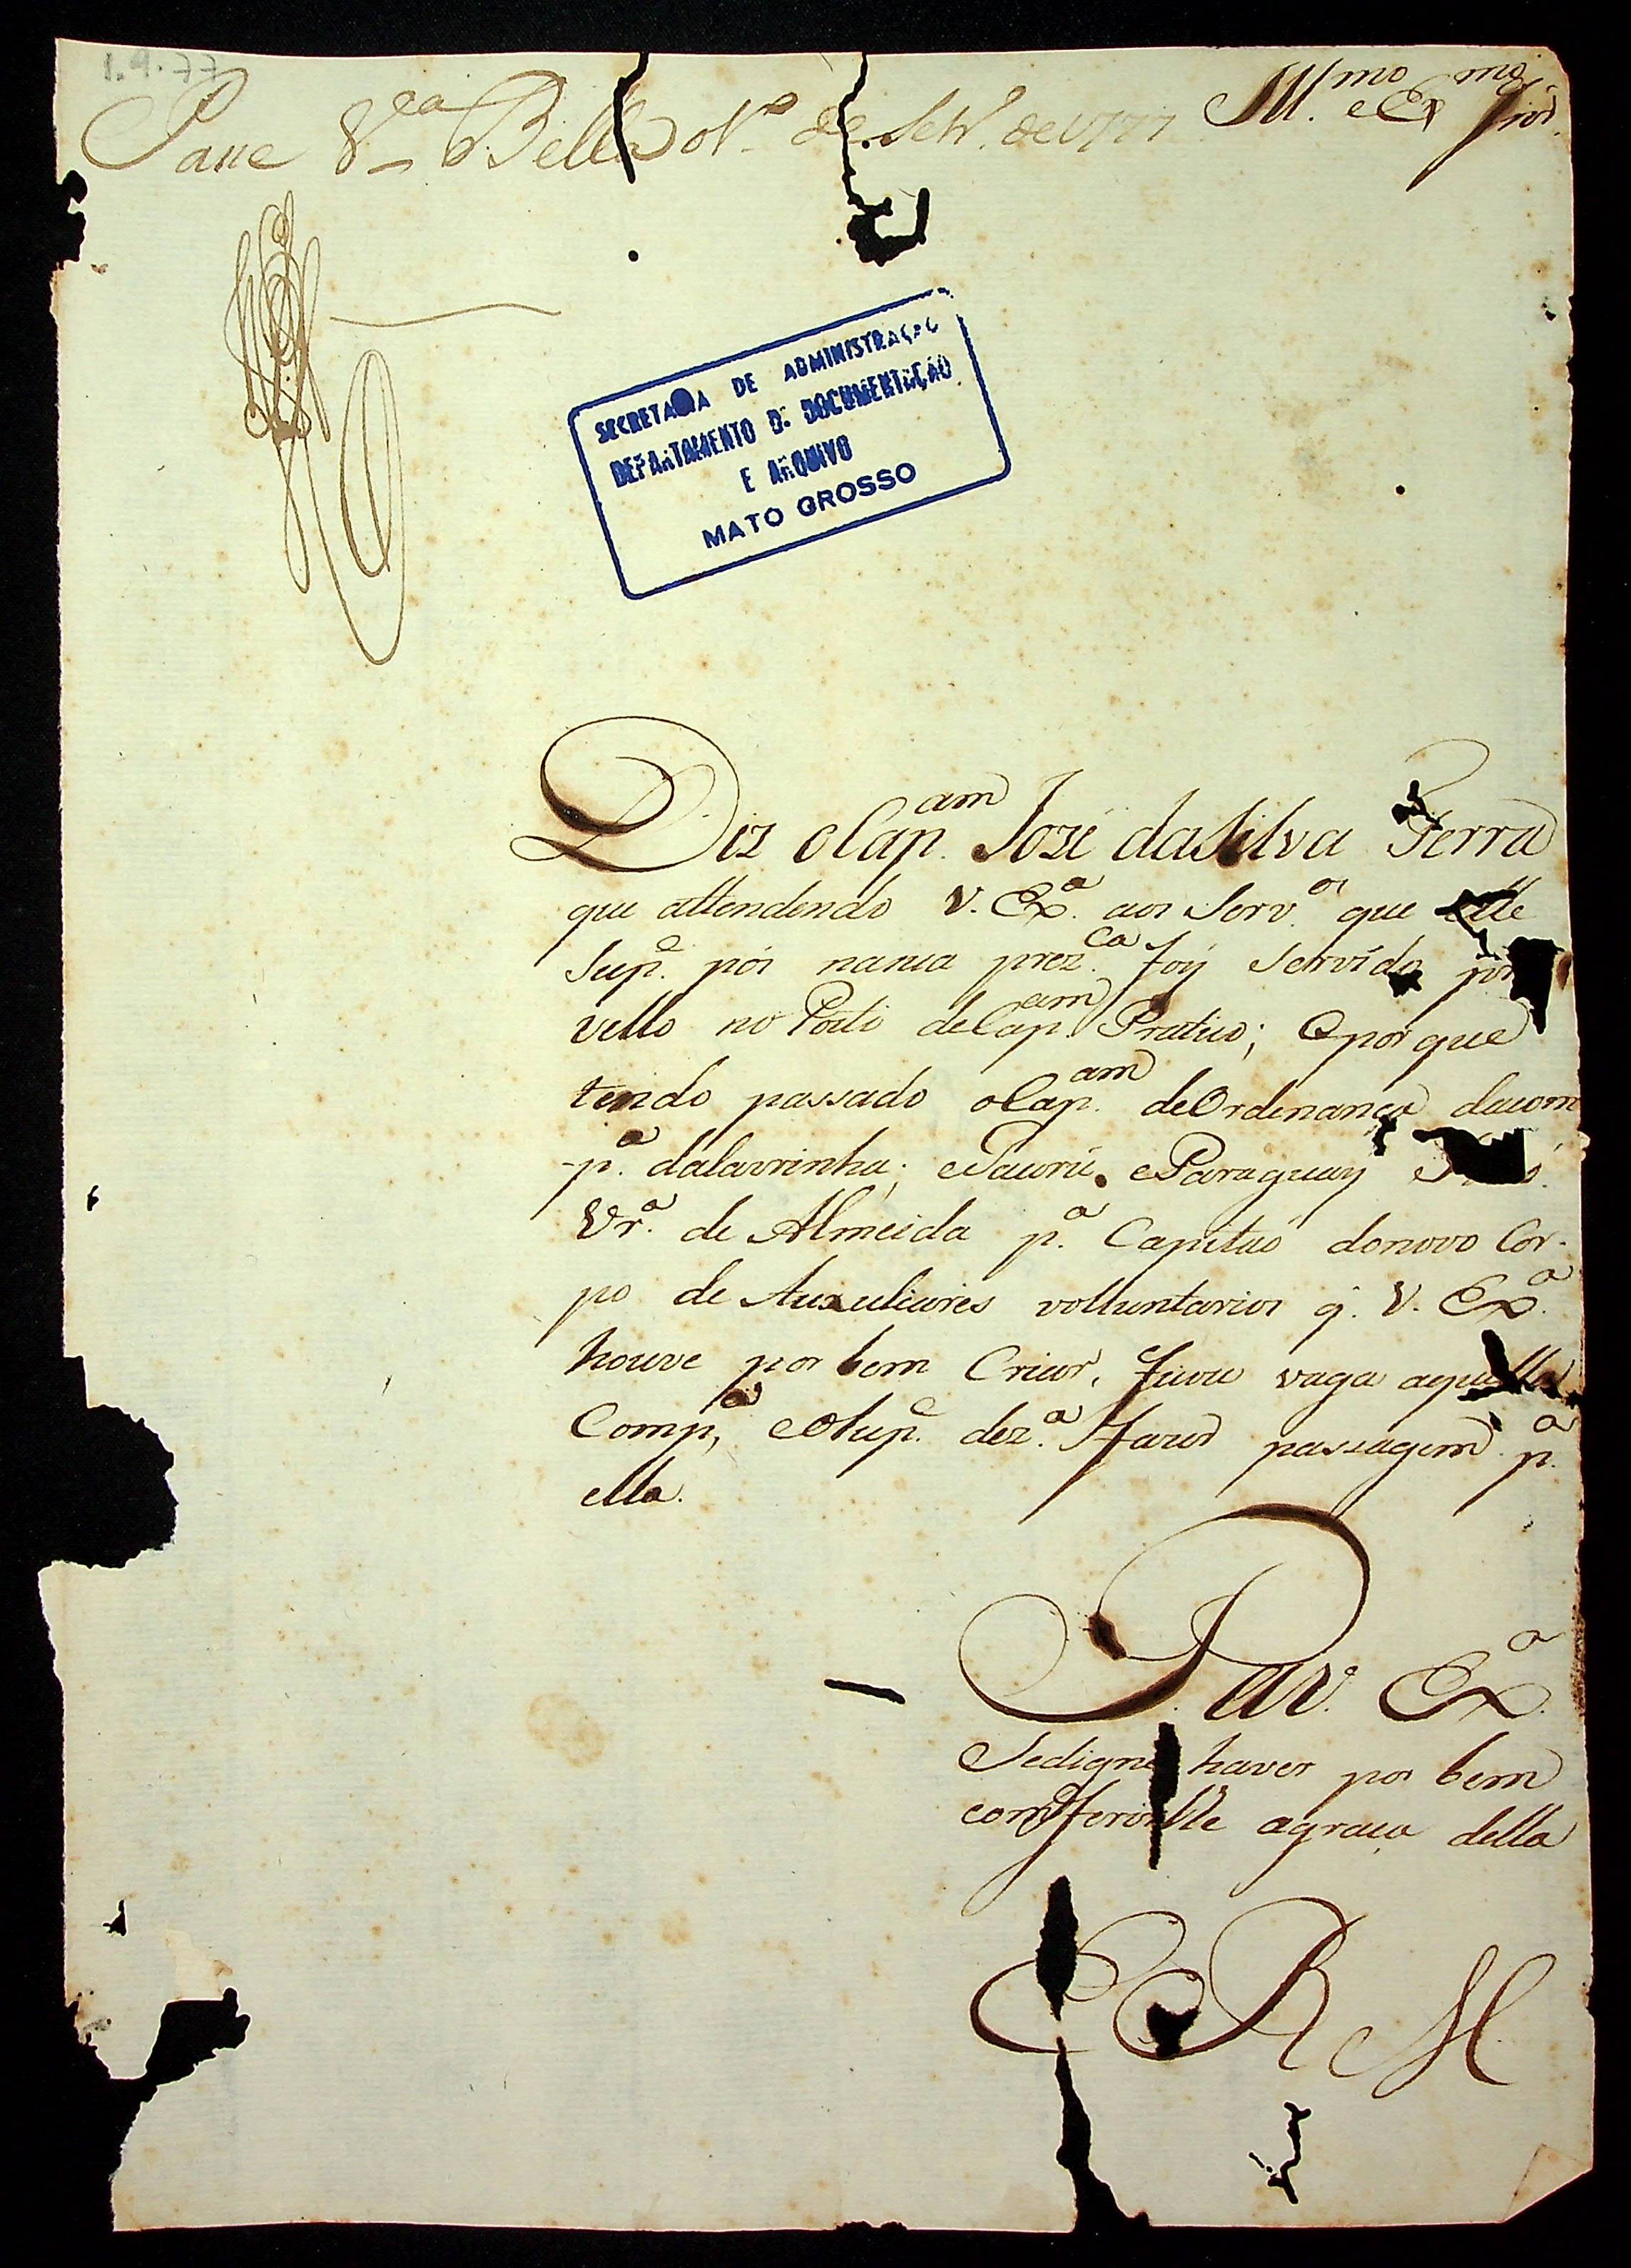 1.9.77
Passe V.ª Bella o 1.º de Setr.º de 1777
Ill.mo e Ex.mo Snor.
SECRETARIA DE ADMINISTRAÇÃO
DEPARTAMENTO DE DOCUMENTAÇÃO
E ARQUIVO
MATO GROSSO
Diz o Cap.am Jozé da Silva Ferra
que attendendo V. Ex.ª aos Serv.os que elle
Sup.e pos na sua prez.ca foy Servido
vello no Posto de Cap.am Pratico; E porque
tendo passado o Cap.am de Ordenança da com
p.ª da Lavrinha; e Jaurú e Paraguay
Vr.ª de Almeida p.ª Capitão do novo Cor-
po de Auxuliares volluntarios q. V. Ex.ª
houve por bem Criar, ficou vaga aquella
Comp,ª e o Sup.e dez.ª fazer passagem p.ª
ella.
P. a V. Ex.ª
Se digne haver por bem
comferirlhe a graça della
E R M